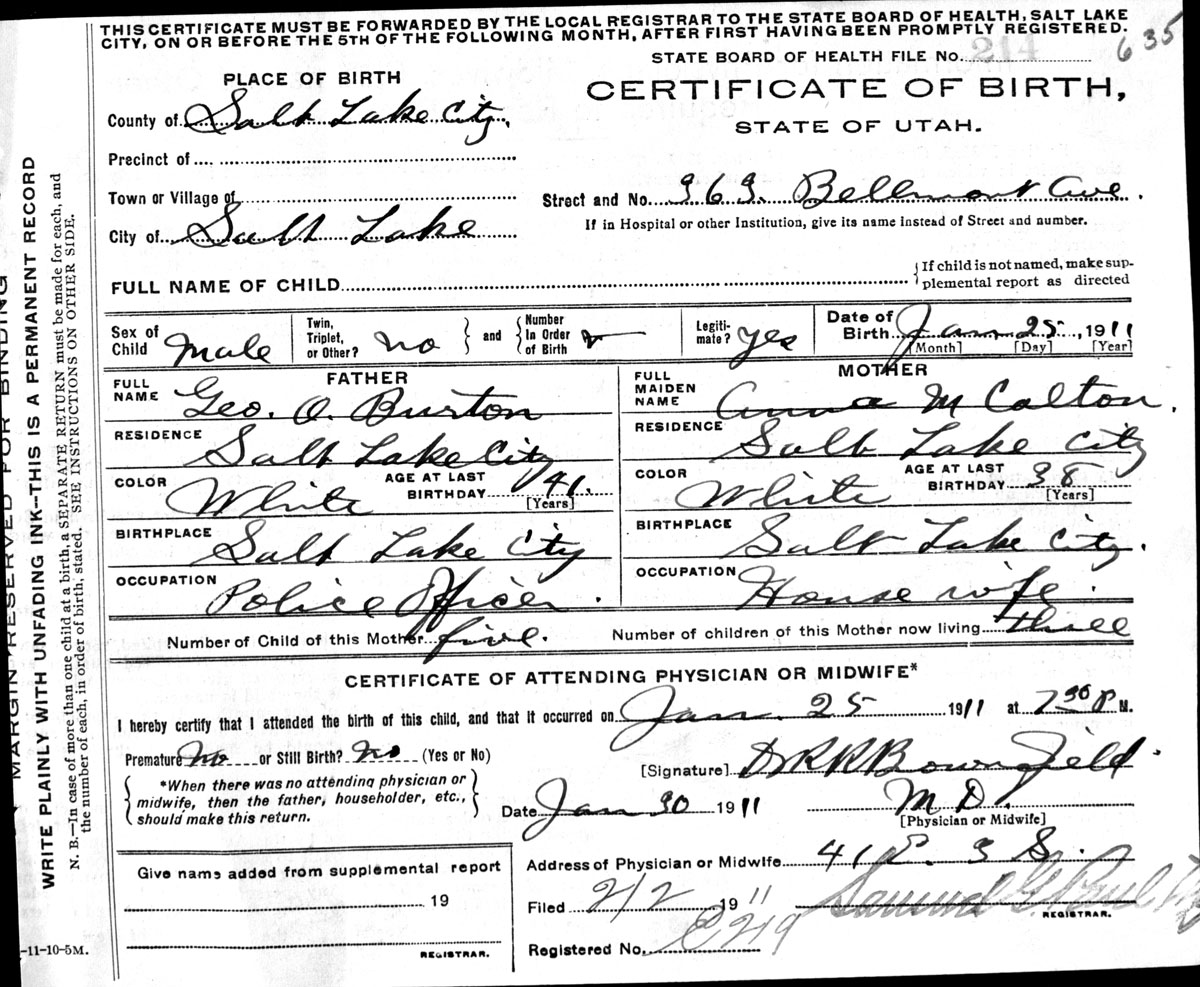 THIS CERTIFICATE MUST BE FORWARDED BY THE LOCAL REGISTRAR TO THE STATE BOARD OF HEALTH, SALT LAKE
CITY, ON OR BEFORE THE 5TH OF THE FOLLOWING MONTH, AFTER FIRST HAVING BEEN PROMPTLY REGISTERED.
STATE BOARD OF HEALTH FILE No. 214 635
PLACE OF BIRTH
CERTIFICATE OF BIRTH,
STATE OF UTAH.
County of Salt Lake City.
Precinct of
Town or Village of
Street and No. 363. Bellmont Ave.
City of Salt Lake
If in Hospital or other Institution, give its name instead of Street and number.
FULL NAME OF CHILD
{If child is not named, make sup-
plemental report as directed
Sex of Child Male
Twin, Triplet, or Other? no } and { Number In Order of Birth
Legiti-mate? yes
Date of Birth Jan 25, 1911
[Month] [Day] [Year]
FATHER
FULL NAME Geo. O. Burton
RESIDENCE Salt Lake City
COLOR White AGE AT LAST BIRTHDAY 41. [Years]
BIRTHPLACE Salt Lake City
OCCUPATION Police Officer.
MOTHER
FULL MAIDEN NAME Anna M Calton.
RESIDENCE Salt Lake City
COLOR White AGE AT LAST BIRTHDAY 38 [Years]
BIRTHPLACE Salt Lake City.
OCCUPATION House wife.
Number of Child of this Mother five. Number of children of this Mother now living three
CERTIFICATE OF ATTENDING PHYSICIAN OR MIDWIFE*
I hereby certify that I attended the birth of this child, and that it occurred on Jan. 25 1911 at 7 30 P M.
Premature No or Still Birth? No (Yes or No)
{*When there was no attending physician or
midwife, then the father, householder, etc.,
should make this return.}
[Signature] Dr R R Bownfield.
M D.
[Physician or Midwife]
Date Jan 30 1911
Address of Physician or Midwife 41 E. 3 S.
Filed 2/2 1911 Samuel G. Paul
REGISTRAR.
Registered No. 219
Give name added from supplemental report
19
REGISTRAR.
-11-10-5M.
MARGIN RESERVED FOR BINDING
WRITE PLAINLY WITH UNFADING INK—THIS IS A PERMANENT RECORD
N. B.—In case of more than one child at a birth, a SEPARATE RETURN must be made for each, and
the number of each, in order of birth, stated. SEE INSTRUCTIONS ON OTHER SIDE.